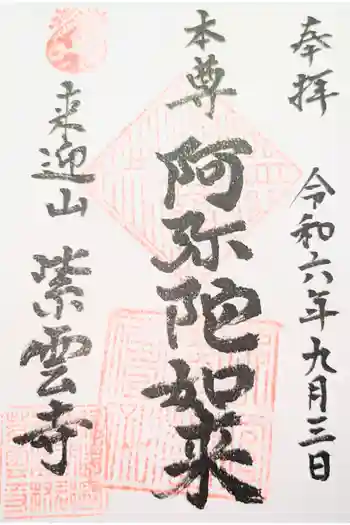 奉拝
令和六年九月三日
本尊
阿弥陀如来
来迎山
紫雲寺